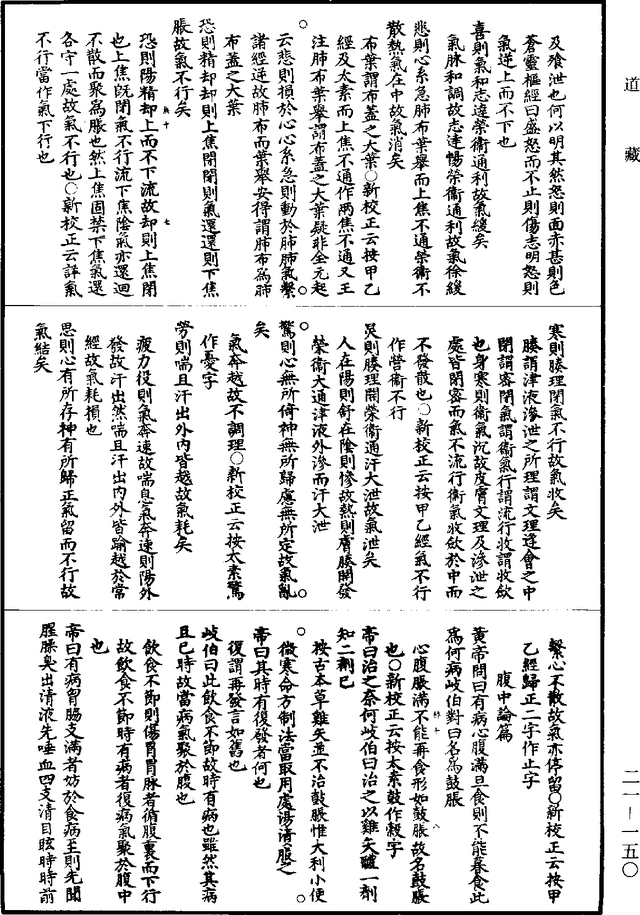 道藏
及飧泄也何以明其然怒則面赤甚則色
蒼靈樞經曰盛怒而不止則傷志明怒則
氣逆上而不下也
喜則氣和志達榮衞通利故氣緩矣
氣脉和調故志達暢榮衞通利故氣徐緩
悲則心系急肺布葉舉而上焦不通榮衞不
散熱氣在中故氣消矣
布葉謂布蓋之大葉○新校正云按甲乙
經及太素而上焦不通作兩焦不通又王
注肺布葉舉謂布蓋之大葉疑非全元起
云悲則損於心心系急則動於肺肺氣繫
諸經逆故肺布而葉舉安得謂肺布爲肺
布蓋之大葉
恐則精却却則上焦閉閉則氣還還則下焦
脹故氣不行矣
恐則陽精却上而不下流故却則上焦閉
也上焦旣閉氣不行流下焦陰氣亦還迴
不散而聚爲脹也然上焦固禁下焦氣還
各守一處故氣不行也○新校正云詳氣
不行當作氣下行也
寒則腠理閉氣不行故氣收矣
腠謂津液滲泄之所理謂文理逢會之中
閉謂密閉氣謂衞氣行謂流行收謂收斂
也身寒則衞氣沉故皮膚文理及滲泄之
處皆閉密而氣不流行衞氣收斂於中而
不發散也○新校正云按甲乙經氣不行
作營衞不行
炅則腠理開榮衞通汗大泄故氣泄矣
人在陽則舒在陰則慘故熱則膚腠開發
榮衞大通津液外滲而汗大泄
驚則心無所倚神無所歸慮無所定故氣亂
矣
氣奔越故不調理○新校正云按太素驚
作憂字
勞則喘且汗出外內皆越故氣耗矣
疲力役則氣奔速故喘息氣奔速則陽外
發故汗出然喘且汗出內外皆踰越於常
經故氣耗損也
思則心有所存神有所歸正氣留而不行故
氣結矣
繫心不散故氣亦停留○新校正云按甲
乙經歸正二字作止字
腹中論篇
黃帝問曰有病心腹滿旦食則不能暮食此
爲何病岐伯對曰名爲鼓脹
心腹脹滿不能再食形如鼓脹故名鼓脹
也○新校正云按太素鼓作穀字
帝曰治之奈何岐伯曰治之以雞矢醴一劑
知二劑已
按古本草雞矢並不治鼓脹惟大利小便
微寒今方制法當取用處湯漬服之
帝曰其時有復發者何也
復謂再發言如舊也
岐伯曰此飲食不節故時有病也雖然其病
且已時故當病氣聚於腹也
飲食不節則傷胃胃脉者循腹裏而下行
故飲食不節時有病者復病氣聚於腹中
也
帝曰有病胷脇支滿者妨於食病至則先聞
腥臊臭出清液先唾血四支清目眩時時前
二一—一五〇